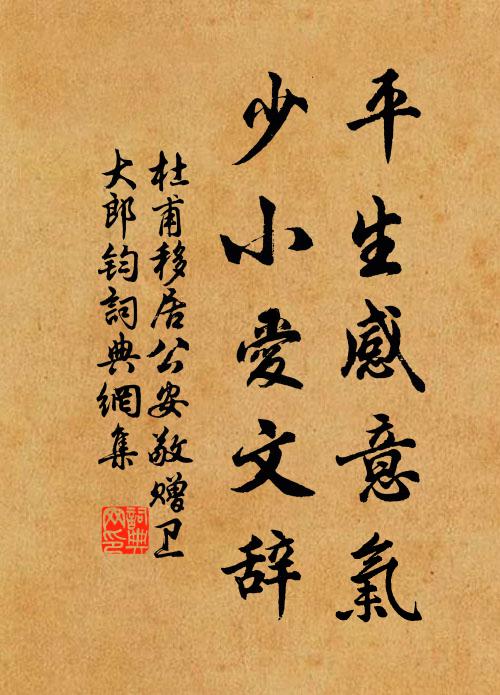 平生感意氣
少小愛文辞
杜甫移居公安敬赠卫
大郎钧詞典網集
詞典